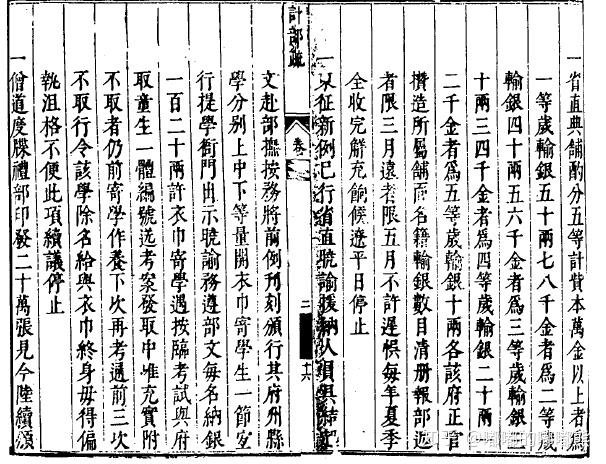 一省直典舖酌分五等計貲本萬金以上者爲
一等歲輸銀五十兩七八千金者爲二等歲
輸銀四十兩五六千金者爲三等歲輸銀三
十兩三四千金者爲四等歲輸銀二十兩
二千金者爲五等歲輸銀十兩各該府正官
攢造所屬舖面名籍輸銀數目清册報部近
者限三月遠者限五月不許遲悞每年夏季
全收完解充餉候遼平日停止
征新例已行省直曉諭援納人
計部疏
卷
二
十六
文赴部撫按務將前例刊刻頒行其府州縣
學分别上中下等量開衣巾寄學生一節
行提學衙門出示曉諭務遵部文每名納銀
一百二十兩許衣巾寄學遇按臨考試與府
取童生一體編號送考案發取中准充實附
不取者仍前寄學作養下次再考通前三次
不取行令該學除名給與衣巾終身毋得偏
執沮格不便此項續議停止
一僧道度牒禮部印發二十萬張見今陸續頒
知乎